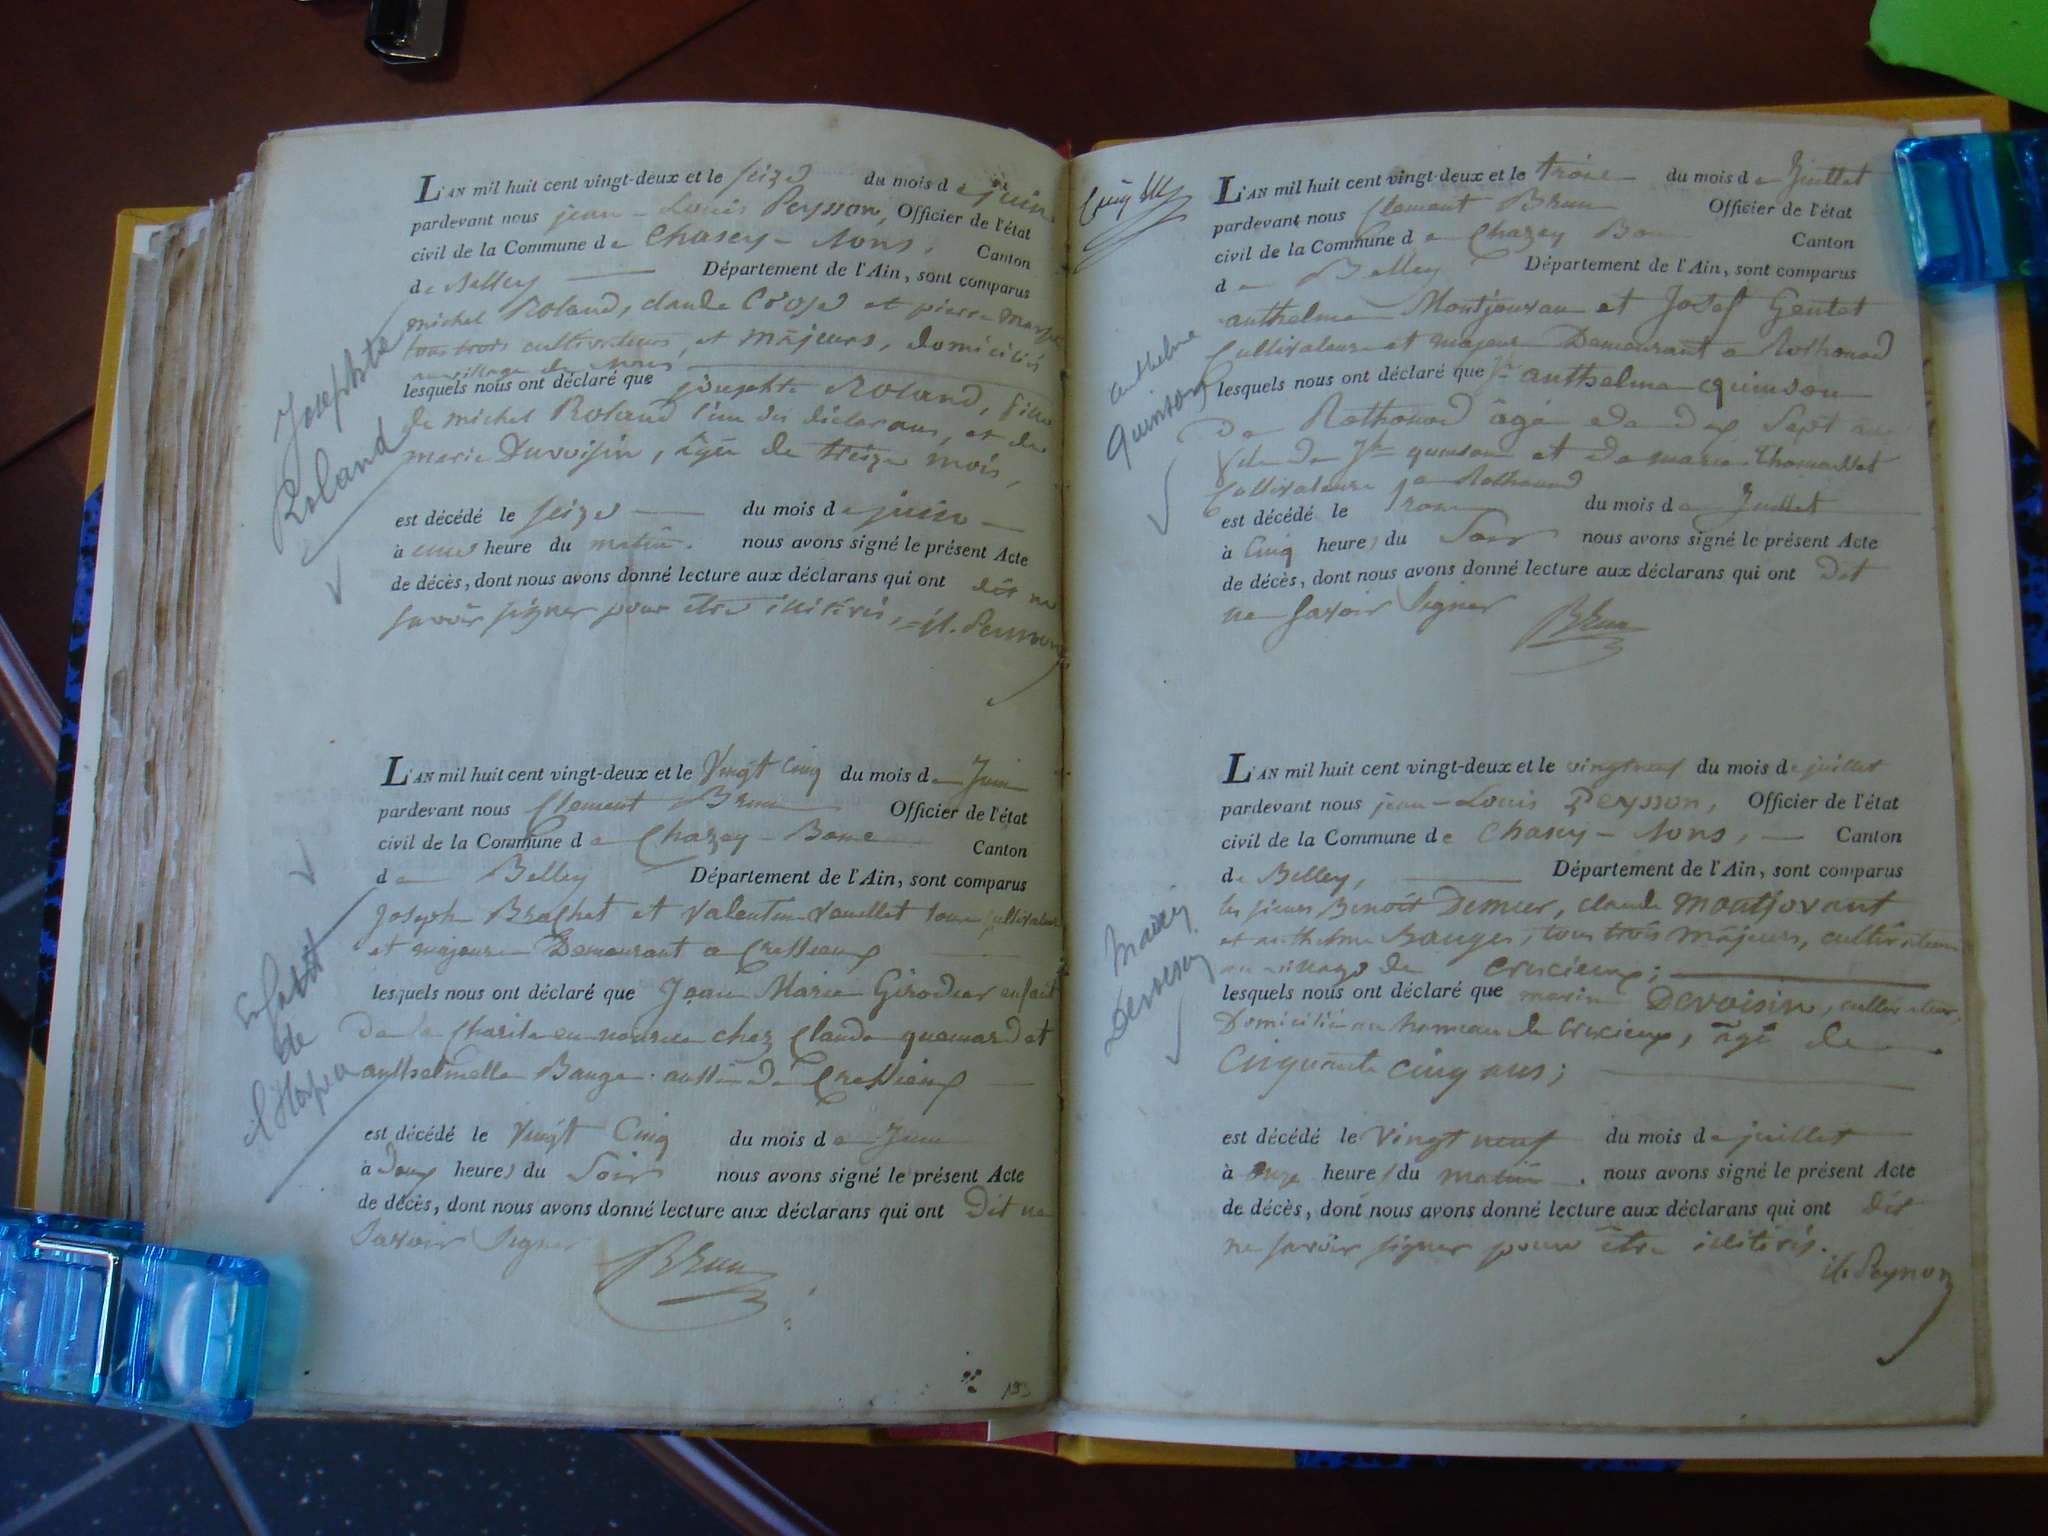 L'AN mil huit cent vingt-deux et le seize du mois de juin
pardevant nous jean-Louis Peysson, Officier de l'état
civil de la Commune de Chasey-Sons, Canton
de Belley Département de l'Ain, sont comparus
michel Roland, claude et pierre
tous trois cultivateurs, et májeurs, domiciliés
au village de
lesquels nous ont déclaré que josephte Roland, fille
de michel Roland l'un des déclarans, et de
marie Duvoisin, âgée de treize mois,
est décédé le seize du mois de juin
à heure du matin. nous avons signé le présent Acte
de décès, dont nous avons donné lecture aux déclarans qui ont dit ne
savoir signer pour être illitérés,
Josephte
Roland
L'AN mil huit cent vingt-deux et le Vingt Cinq du mois de Juin
pardevant nous Clement Brun Officier de l'état
civil de la Commune de Chazey-Bone Canton
de Belley Département de l'Ain, sont comparus
Joseph Brachet et Valentin Vouillet tous cultivateur
et majeurs Demeurant a Cressieux
lesquels nous ont déclaré que Jean Marie Girodier enfant
De la Charite en nourice chez Claude quemard et
anthelmette Bauge aussi De Cressieux
est décédé le Vingt Cinq du mois de Juin
à Deux heures du Soir nous avons signé le présent Acte
de décès, dont nous avons donné lecture aux déclarans qui ont Dit ne
Savoir Signer Brun
de
193
L'AN mil huit cent vingt-deux et le troix du mois de Juillet
pardevant nous Clement Brun Officier de l'état
civil de la Commune de Chazey Bon Canton
de Belley Département de l'Ain, sont comparus
anthelme Montjouvan et Josef Gentet
Cultivateurs et majeur Demeurant a Rothonod
lesquels nous ont déclaré que anthelme quinson
De Rothonod âgé de Sept ans
de Jh quinson et de marie Thomasset
Cultivateurs a Rothonod
est décédé le Troix du mois de Juillet
à Cinq heures du Soir nous avons signé le présent Acte
de décès, dont nous avons donné lecture aux déclarans qui ont Dit
ne Savoir Signer Brun
anthelme
Quinson
L'AN mil huit cent vingt-deux et le vingt neuf du mois de juillet
pardevant nous jean-Louis Peysson, Officier de l'état
civil de la Commune de Chasey-Sons, Canton
de Belley, Département de l'Ain, sont comparus
les sieurs Benoit Demier, claude Montjovant
et anthelme Bauges, tous trois májeurs, cultivateurs
au village de crucieux;
lesquels nous ont déclaré que marin Devoisin, cultivateur,
Domicilié au hameau de Crucieux, âgé de
Cinquante cinq ans;
est décédé le vingt neuf du mois de juillet
à onze heures du matin. nous avons signé le présent Acte
de décès, dont nous avons donné lecture aux déclarans qui ont dit
ne savoir signer pour être illitérés.